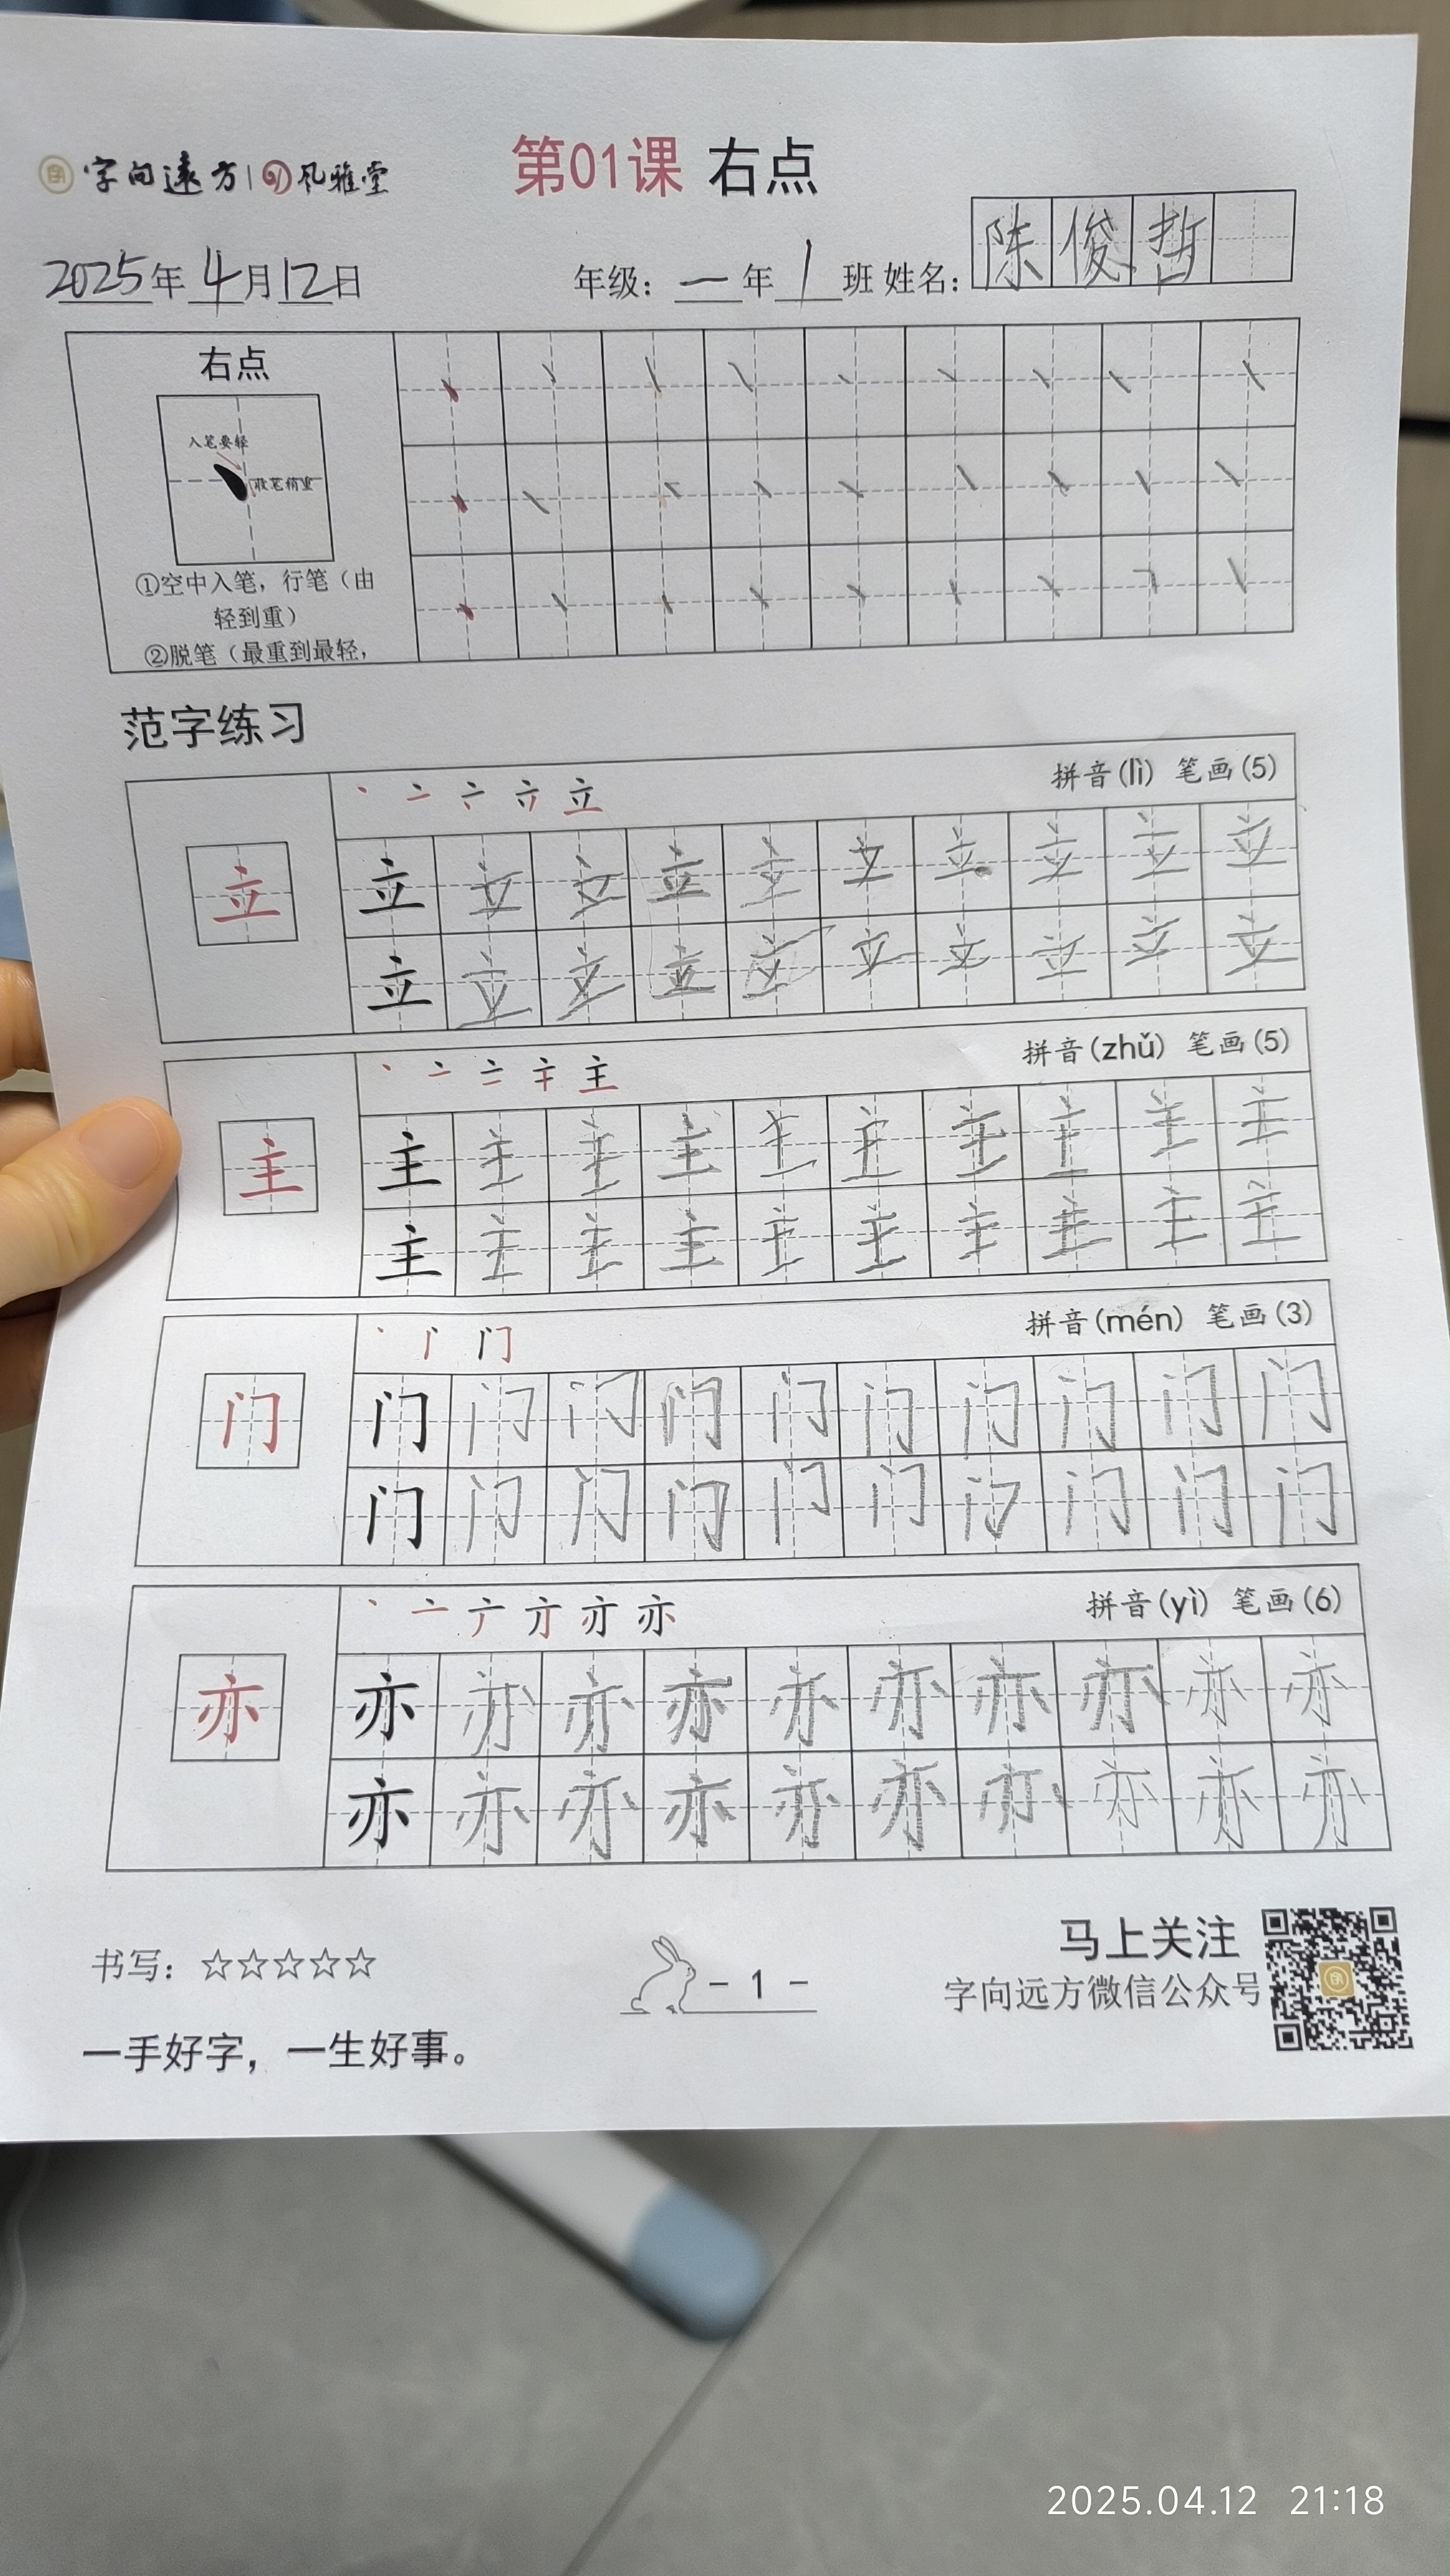 字向遠方 | 风雅堂
第01课 右点
2025年 4月12日 年级：一年1班 姓名：陈俊哲
右点
入笔要轻
收笔稍重
①空中入笔，行笔（由
轻到重）
②脱笔（最重到最轻，
范字练习
拼音(lì) 笔画(5)
立 立 立 立 立 立 立 立 立 立 立
立 立 立 立 立 立 立 立 立 立
拼音(zhǔ) 笔画(5)
主 主 主 主 主 主 主 主 主 主 主
主 主 主 主 主 主 主 主 主 主
拼音(mén) 笔画(3)
门 门 门 门 门 门 门 门 门 门 门
门 门 门 门 门 门 门 门 门 门
拼音(yì) 笔画(6)
亦 亦 亦 亦 亦 亦 亦 亦 亦 亦 亦
亦 亦 亦 亦 亦 亦 亦 亦 亦 亦
书写：☆☆☆☆☆
- 1 -
马上关注
字向远方微信公众号
一手好字，一生好事。
2025.04.12 21:18